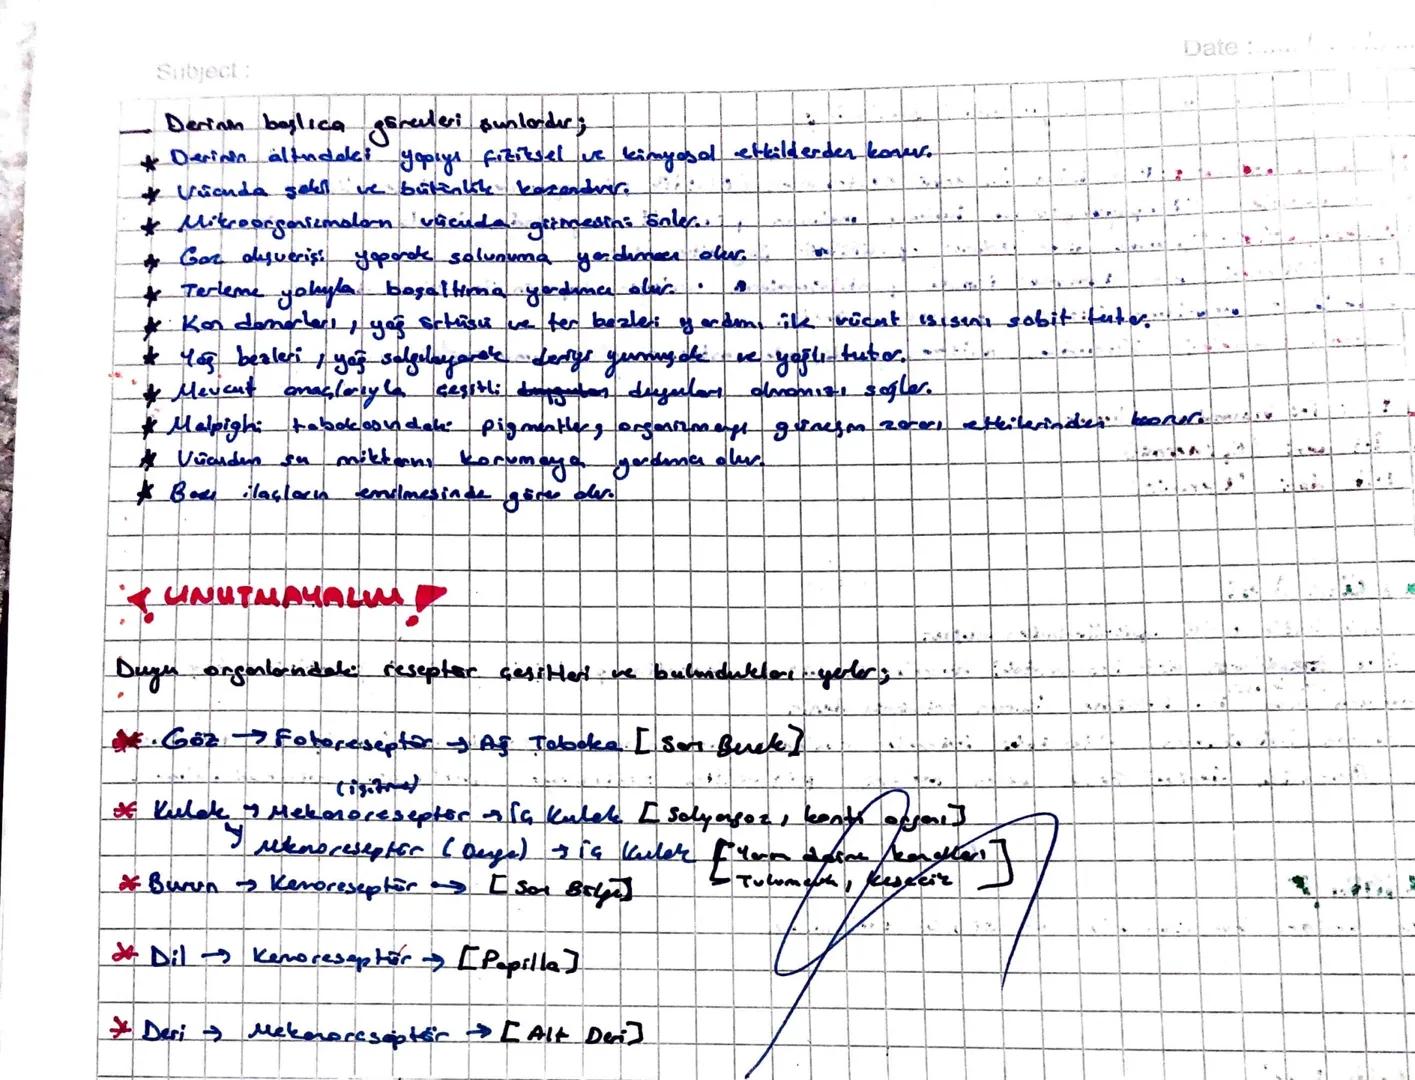 Subject :
Date :
Derinin başlıca görevleri şunlardır;
* Derinin altındaki yapıyı fiziksel ve kimyasal etkilderden korur.
* Vücuda şekil ve bütünlük kazandırır.
* Mikroorganizmaların vücuda girmesini önler.
* Gaz alışverişi yaparak solunuma yardımcı olur.
* Terleme yoluyla boşaltıma yardımcı olur.
* Kan damarları, yağ örtüsü ve ter bezleri yardımı ile vücut ısısını sabit tutar.
* Yağ bezleri, yağ salgılayarak deriyi yumuşak ve yağlı tutar.
* Mevcut amaçlarıyla çeşitli duyguları almamızı sağlar.
* Malpighi tabakasındaki pigmentler, organizmayı güneşin zararı etkilerinden korur.
* Vücudun su miktarını korumaya yardımcı olur.
* Bazı ilaçların emilmesinde görev alır.
UNUTMAYALIM!
Duyu organlarındaki reseptör çeşitleri ve bulundukları yerler;
* Göz → Fotoreseptör → Ağ Tabaka [Sarı Benek]
(işitme)
* Kulak → Mekanoreseptör → İç Kulak [Salyangoz, korti organı]
Mekanoreseptör (Denge) → İç Kulak [Yarım daire kanalları
Tulumcuk, kesecik]
* Burun → Kemoreseptör → [Sarı Bölge]
* Dil → Kemoreseptör → [Papilla]
* Deri → Mekanoreseptör → [Alt Deri]